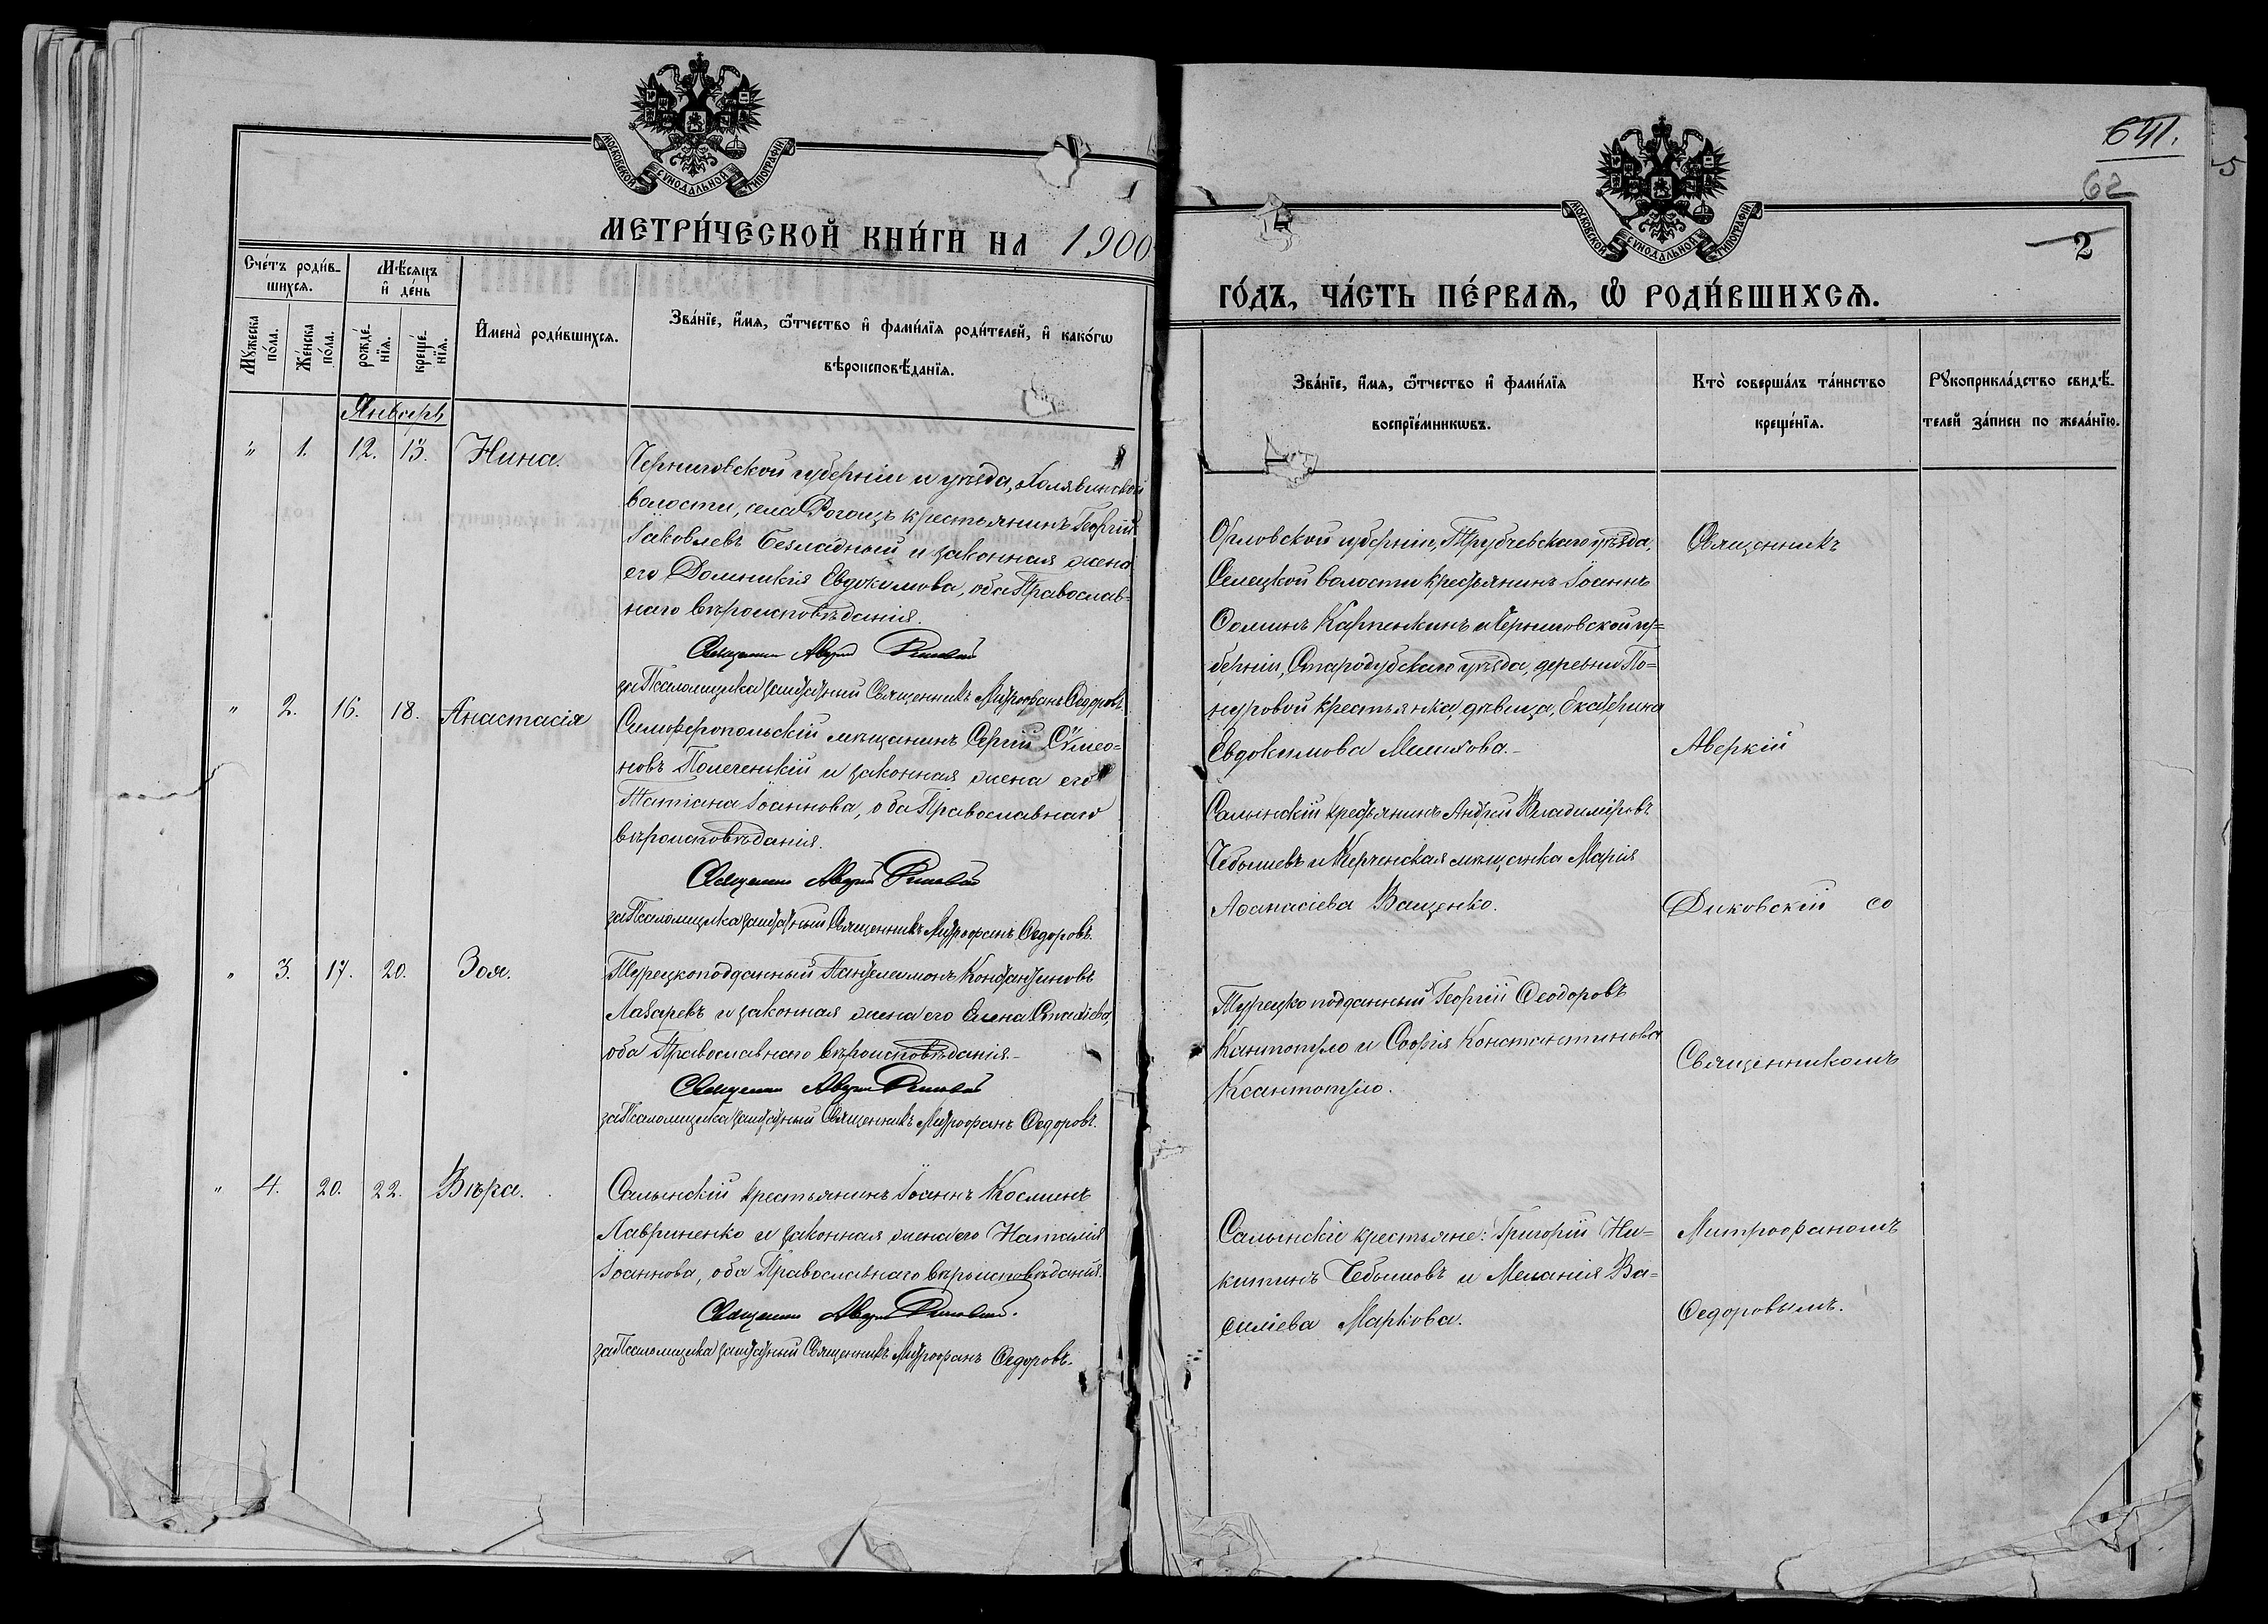 МОСКОВСКОЙ СѴНОДАЛЬНОЙ ТИПОГРАФІИ
МЕТРИ́ЧЕСКОЙ КНИ́ГИ НА 1900
Сче́тъ роди́в-
шихся.
Мѣ́сяцъ
и҆ де́нь
Мꙋ́жеска
по́ла.
Же́нска
по́ла.
рожде́-
нїя.
креще́-
нїя.
И҆мена̀ роди́вшихся.
Зва́нїе, и҆́мя, ѻ҆́тчество и҆ фами́лїя роди́телей, и҆ како́гѡ
вѣроисповѣ́данїя.
Январь
" 1. 12. 13. Нина.
Черниговской губерніи и уѣзда, Холявинской
волости, села Рогощъ крестьянинъ Георгій
Іаковлевъ Безладный и законная жена
его Домникія Евдокимова, оба Православ-
наго вѣроисповѣданія.
Священник Аверкій Диковскій
за Псаломщика заштатный Священникъ Митрофанъ Ѳедоровъ.
" 2. 16. 18. Анастасія
Симферопольскій мѣщанинъ Сергій Сѵмео-
новъ Полеченскій и законная жена его
Татіана Іоаннова, оба Православнаго
вѣроисповѣданія.
Священник Аверкій Диковскій
за Псаломщика заштатный Священникъ Митрофанъ Ѳедоровъ.
" 3. 17. 20. Зоя.
Турецкоподданный Пантелеимонъ Константиновъ
Лазаревъ и законная жена его Елена
оба Православнаго вѣроисповѣданія.
Священник Аверкій Диковскій
за Псаломщика заштатный Священникъ Митрофанъ Ѳедоровъ.
" 4. 20. 22. Вѣра.
Салынскій крестьянинъ Іоаннъ Косминъ
Лавриненко и законная жена его Наталія
Іоаннова, оба Православнаго вѣроисповѣданія.
Священник Аверкій Диковскій.
за Псаломщика заштатный Священникъ Митрофанъ Ѳедоровъ.
641.
62
2
МОСКОВСКОЙ СѴНОДАЛЬНОЙ ТИПОГРАФІИ
ГО́ДЪ, ЧА́СТЬ ПЕ́РВАЯ, Ѽ РОДИ́ВШИХСЯ.
Зва́нїе, и҆́мя, ѻ҆́тчество и҆ фами́лїя
воспрїе́мникѡвъ.
Кто̀ соверша́лъ та́инство
креще́нїя.
Рꙋкоприкла́дство свидѣ́-
телей за́писи по жела́нїю.
Орловской губерніи, Трубчевскаго уѣзда,
Селецкой волости крестьянинъ Іоаннъ
Ѳоминъ Карпенкинъ и Черниговской гу=
берніи, Стародубскаго уѣзда, деревни По=
нуровой крестьянка, дѣвица, Екатерина
Евдокимова
Салынскій крестьянинъ Андрей Владиміровъ
Чебышевъ и Керченская мѣщанка Марія
Аѳанасіева Ващенко.
Турецко подданный Георгій Ѳеодоровъ
Ксантопуло и Софія Константинова
Ксантопуло.
Салынскіе крестьяне: Григорій Ни=
китинъ Чебышовъ и Меланія Ва=
силіева Маркова.
Священникъ
Аверкій
Диковскій со
Священникомъ
Митрофаномъ
Ѳедоровымъ.